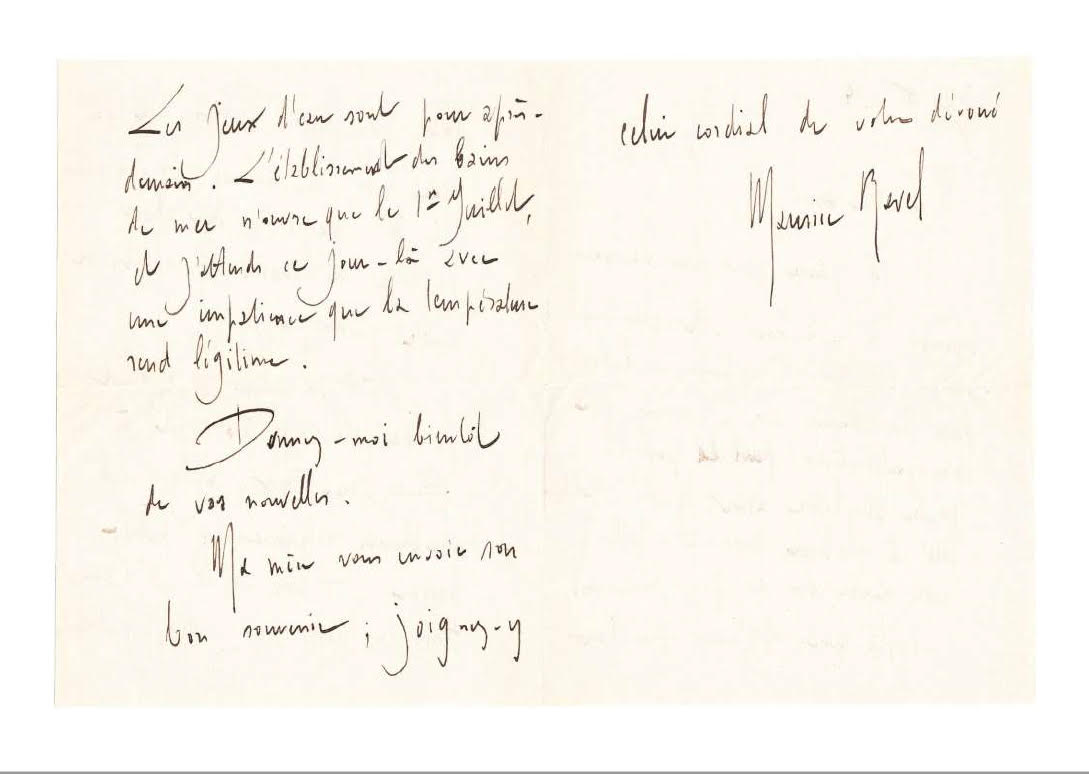 Les Jeux d'eau sont pour après-
demain. L'établissement des bains
de mer n'ouvre que le 1er Juillet,
et j'attends ce jour-là avec
une impatience que la température
rend légitime.
Donnez-moi bientôt
de vos nouvelles.
Ma mère vous envoie son
bon souvenir ; joignez-y
celui cordial de votre dévoué
Maurice Ravel